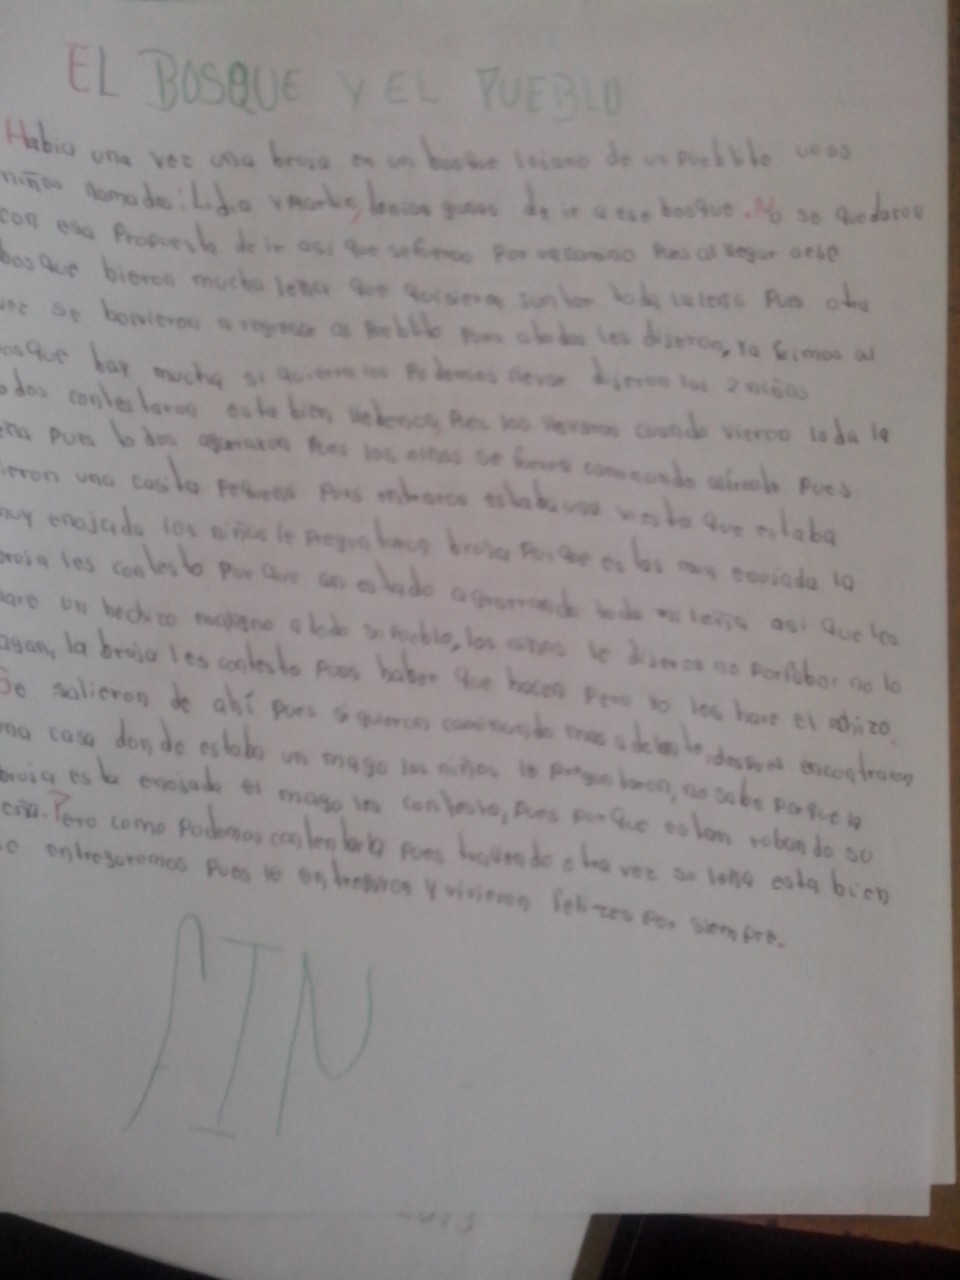 EL BOSQUE Y EL PUEBLO
Habia una vez una bruja en un bosque lejano de un pueblito unos
niños llamados: Lidia y tenian ganas de ir a ese bosque. No se quedaron
con esa Propuesta de ir asi que se fueron Por el camino Pues al llegar a ese
bosque bieron mucha leña que quisieron juntar toda la leña Pues otra
vez se a regresar al Pueblito Pues a todos les dijeron, ya fuimos al
bosque hay mucha si quieren los Podemos llevar dijeron los 2 niños
todos contestaron esta bien Pues los llevaron cuando vieron toda la
leña pues todos agarraron Pues los niños se fueron caminando Pues
vieron una casita Pequeña Pues entraron estaba una que estaba
muy enojada los niños le preguntaron bruja Porque estas muy enojada la
bruja les contesto Por que an estado agarrando toda mi leña asi que les
hare un hechizo a todo su Pueblo, los niños le dijeron no porfabor no lo
hagan, la bruja les contesto Pues haber que hacen Pero yo les hare el
Se salieron de ahí pues siguieron caminando mas adelante, despues encontraron
una casa donde estaba un mago los niños le preguntaron, no sabe porque la
bruja esta enojada el mago les contesto, pues porque estan robando su
leña. Pero como Podemos contentarla pues trallendo otra vez su leña esta bien
entregaremos Pues le entregaron y vivieron felizes Por siempre.
FIN